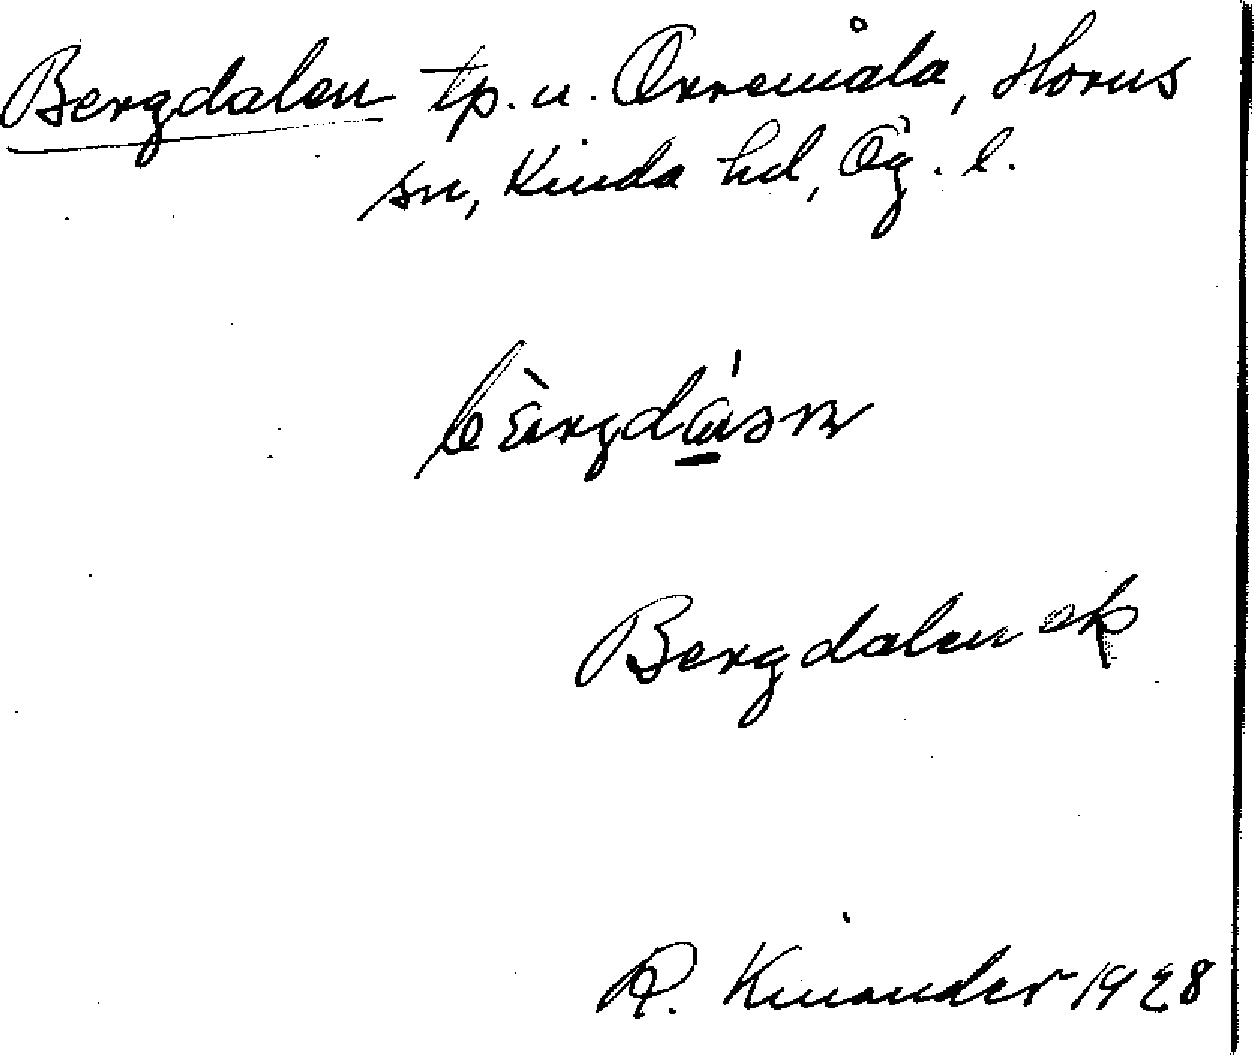 Bergdalen tp. u. Orremåla, Horns
sn, Kinda hd, Ög. l.
Bergdalen ek
R. Kinander 1928